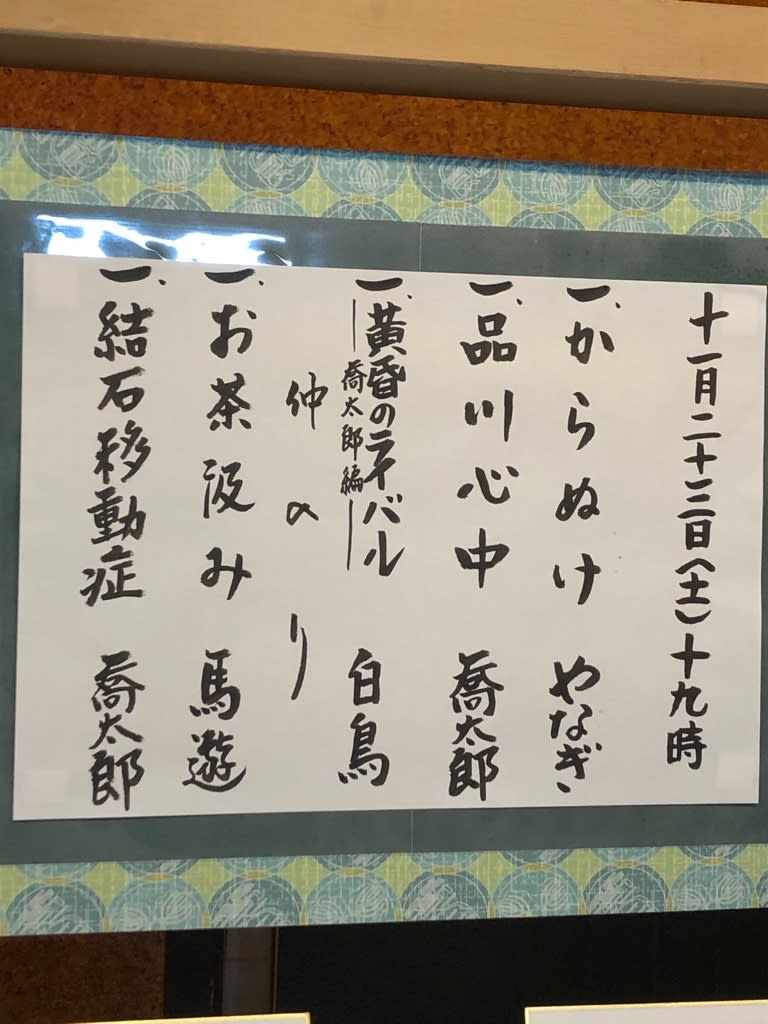 十一月二十三日(土)十九時
一、からぬけ やなぎ
一、品川心中 喬太郎
一、黄昏のライバル 白鳥
―喬太郎編―
仲の入り
一、お茶汲み 馬遊
一、結石移動症 喬太郎